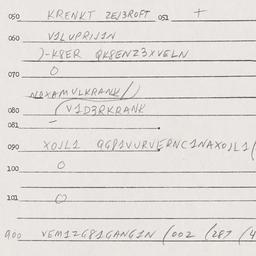 050 KRENKT ZE/3ROFT 051 +
060 V1LUPRIJ1N
)-K8ER QK8ENZ3XVELN
070 0
NQXAMVLKRANK/)
080 (V1D3RKRANK
081 -
090 XOJL1 QG81VURVERNC1NAXOJL1(
100 0
101 0
900 VEM1ZG81GANG1N (002 (287 (4